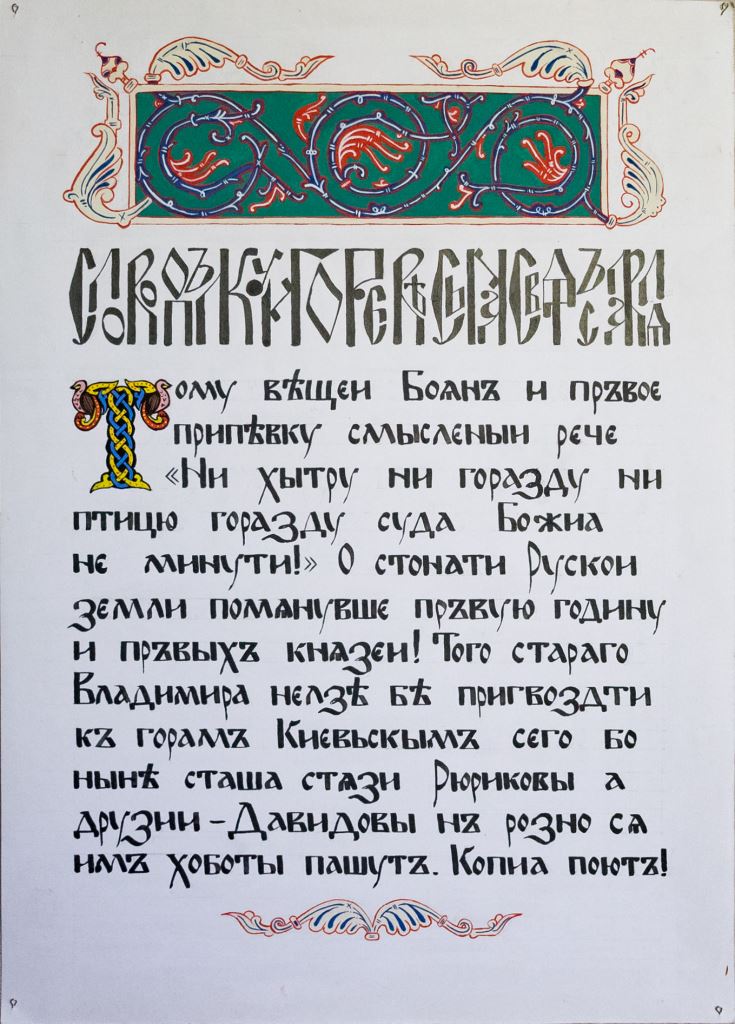 СЛОВО О ПЪЛКУ ИГОРЕВѢ СЫНА СВѦТЪСЛАВЛѦ
Тому вѣщеи Боѧнъ и пръвое
припѣвку смысленыи рече
«Ни хытру ни горазду ни
птицю горазду суда Божиа
не минути!» О стонати Рускои
земли помѧнувше пръвую годину
и пръвыхъ кнѧзеи! Того стараго
Владимира нелзѣ бѣ пригвоздти
къ горамъ Киевьскымъ сего бо
нынѣ сташа стѧзи Рюриковы а
друзии – Давидовы нъ розно сѧ
имъ хоботы пашутъ. Копиа поютъ!